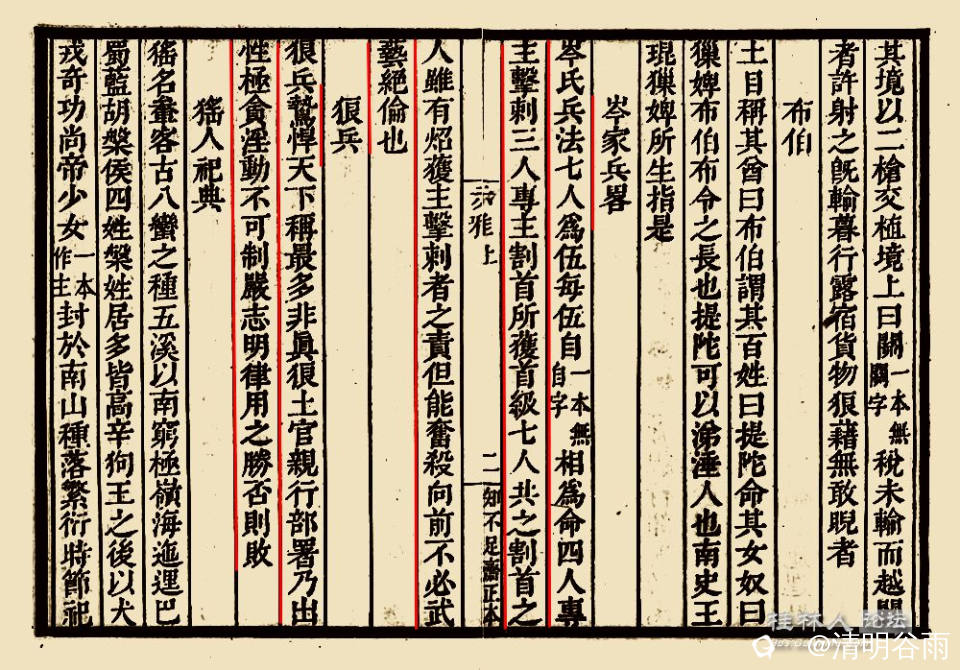 其境以二槍交植境上曰關一本無關字稅未輸而越關
者許射之旣輸暮行露宿貨物狼藉無敢睨者
布伯
土目稱其酋曰布伯謂其百姓曰提陀命其女奴曰
獵婢布伯布令之長也提陀可以涕唾人也南史王
琨獵婢所生指是
岑家兵畧
岑氏兵法七人爲伍每伍自一本無自字相爲命四人專
主擊刺三人專主割首所獲首級七人共之割首之
赤雅上 二 知不足齋正本
人雖有炤獲主擊刺者之責但能奮殺向前不必武
藝絕倫也
狼兵
狼兵鷙悍天下稱最多非眞狼土官親行部署乃出
性極貪淫動不可制嚴志明律用之勝否則敗
猺人祀典
猺名輋客古八蠻之種五溪以南窮極嶺海迤邐巴
蜀藍胡槃侯四姓槃姓居多皆高辛狗王之後以犬
戎奇功尚帝少女一本作主封於南山種落繁衍時節祀
桂林人论坛
@清明谷雨